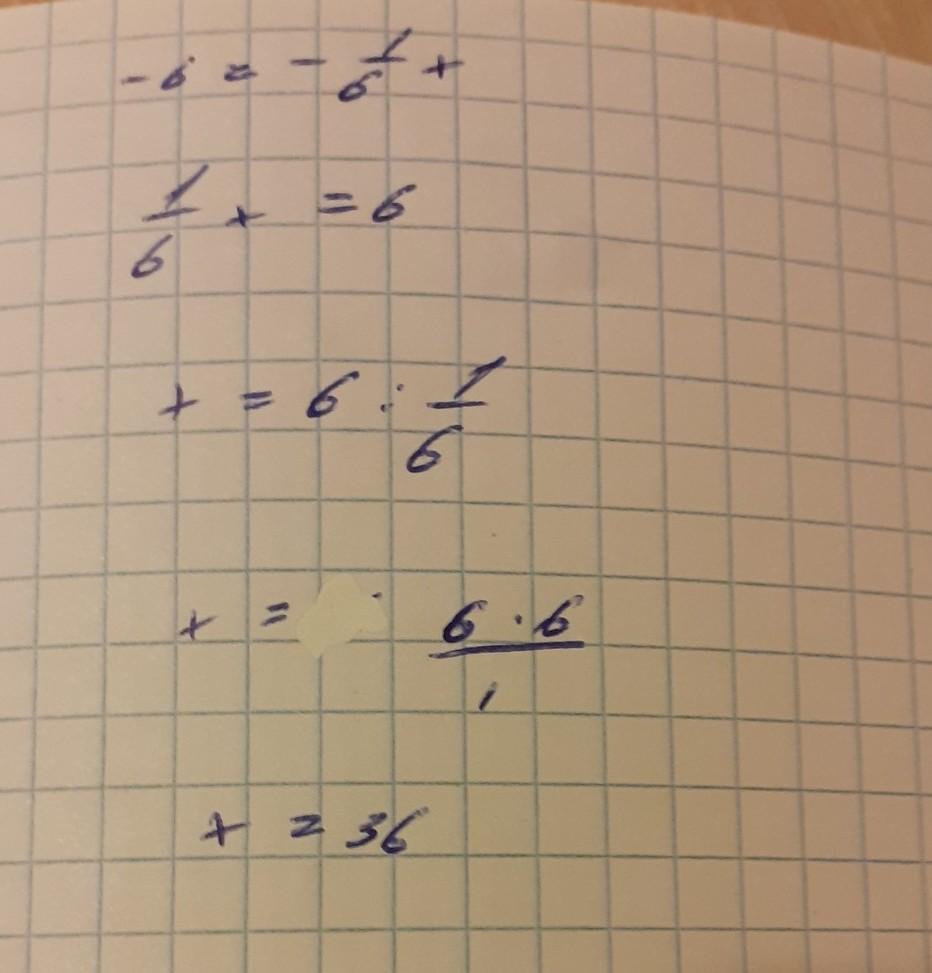 -6 = - 1/6 x
1/6 x = 6
x = 6 : 1/6
x = 6 · 6 / 1
x = 36